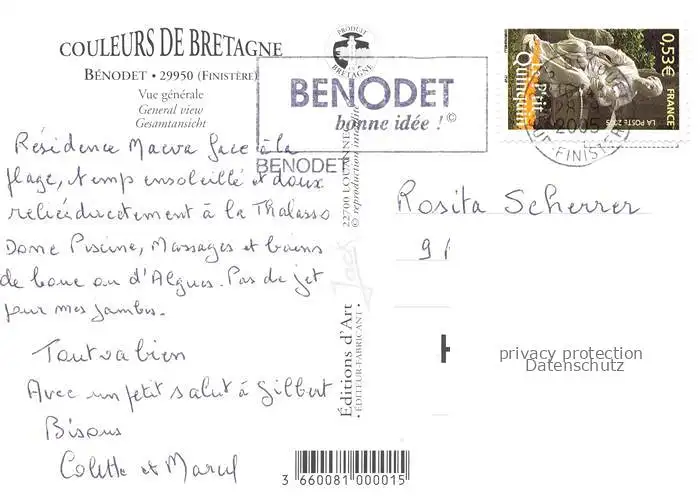 COULEURS DE BRETAGNE
BÉNODET • 29950 (FINISTÈRE)
Vue générale
General view
Gesamtansicht
PRODUIT EN BRETAGNE
BENODET
bonne idée ! ©
BENODET
Le P'tit Quinquin
0,53€
FRANCE
LA POSTE 2005
2005
SUD-FINISTERE
Résidence Maeva face à la
plage, temp ensoleillé et doux
reliée directement à la Thalasso
Donc Piscine, Massages et bains
de boue ou d'Algues. Pas de jet
pour mes jambes.
Tout va bien
Avec un petit salut à Gilbert
Bisous
Colette et Marcel
22700 LOUANNEC
© reproduction interdite
Jack
Éditions d'Art
• ÉDITEUR-FABRICANT •
Rosita Scherrer
91
privacy protection
Datenschutz
3 660081 000015